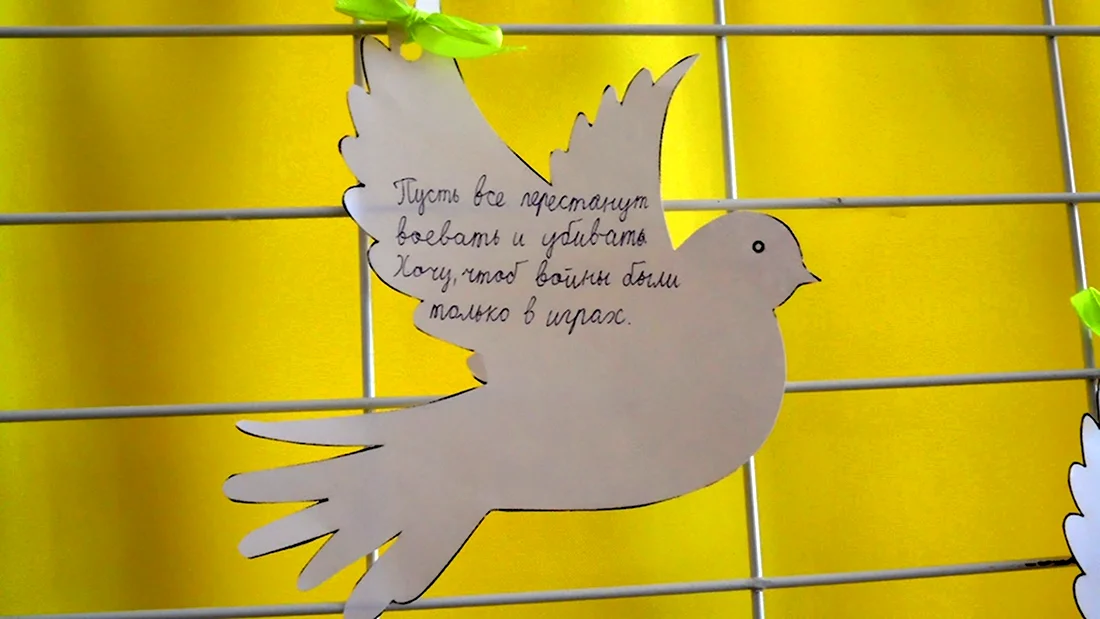 Пусть все перестанут
воевать и убивать
Хочу, чтоб войны были
только в играх.